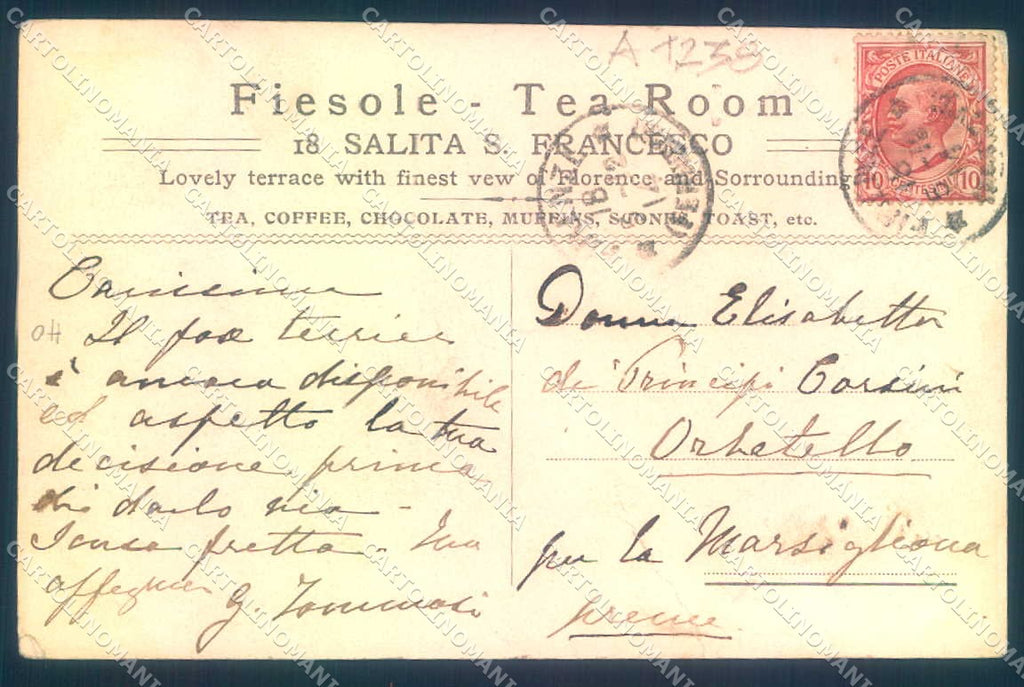 A 1238
POSTE ITALIANE
10 CENTESIMI 10
Fiesole - Tea Room
18 SALITA S. FRANCESCO
Lovely terrace with finest vew of Florence and Sorrounding
TEA, COFFEE, CHOCOLATE, MUFFINS, SCONES, TOAST, etc.
Carissima
Il fox terrier
è ancora disponibile
ed aspetto la tua
decisione prima
di darlo via -
Scusa fretta - Tua
G. Tommasi
Donna Elisabetta
de' Principi Corsini
Orbetello
per la Marsigliana
preme
CARTOLINOMANIA